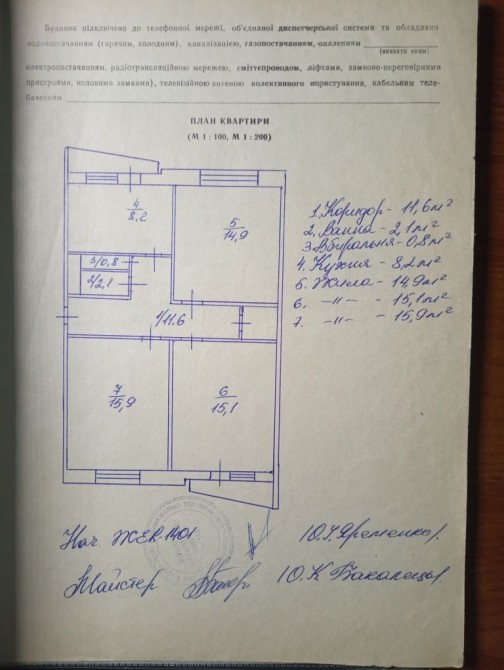 Будинок підключено до телефонної мережі, об'єднаної диспетчерської системи та обладнано
водопостачанням (гарячим, холодним), каналізацією, газопостачанням, опаленням
(вказати яким)
електропостачанням, радіотрансляційною мережею, сміттєпроводом, ліфтами, замково-переговірними
пристроями, кодовими замками), телевізійною антеною колективного користування, кабельним теле-
баченням
ПЛАН КВАРТИРИ
(М 1 : 100, М 1 : 200)
4
8,2
5
14,9
3/0,8
2/2,1
1/11.6
7
15,9
6
15,1
1. Коридор - 11,6 м²
2. Ванна - 2,1 м²
3 Вбиральня - 0,8 м²
4. Кухня - 8,2 м²
5. Жила - 14,9 м²
6. -"- - 15,1 м²
7. -"- - 15,9 м²
Нач. ЖЕК 1401 Ю.Яременко
Майстер Ю.К